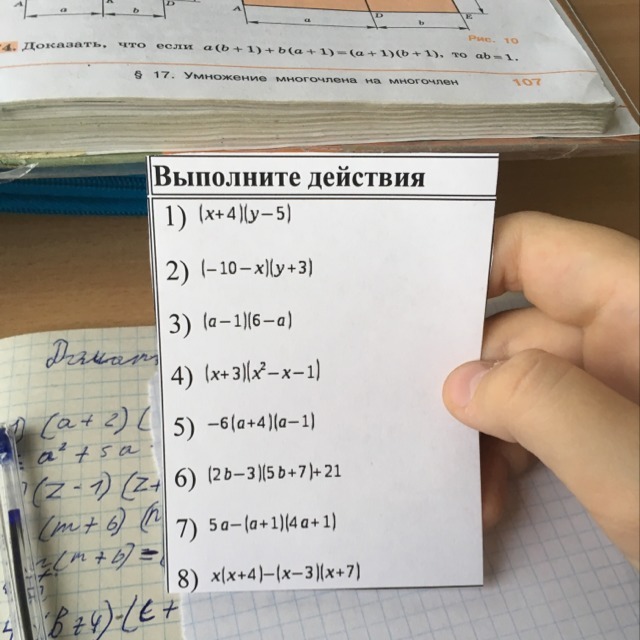 A a K b D
A a D b E
Рис. 10
4. Доказать, что если a(b+1)+b(a+1)=(a+1)(b+1), то ab=1.
§ 17. Умножение многочлена на многочлен 107
Выполните действия
1) (x+4)(y−5)
2) (−10−x)(y+3)
3) (a−1)(6−a)
4) (x+3)(x²−x−1)
5) −6(a+4)(a−1)
6) (2b−3)(5b+7)+21
7) 5a−(a+1)(4a+1)
8) x(x+4)−(x−3)(x+7)
(a+2)(
a²+5a
(z-1)(z+
(m+6)(
(m+6)=